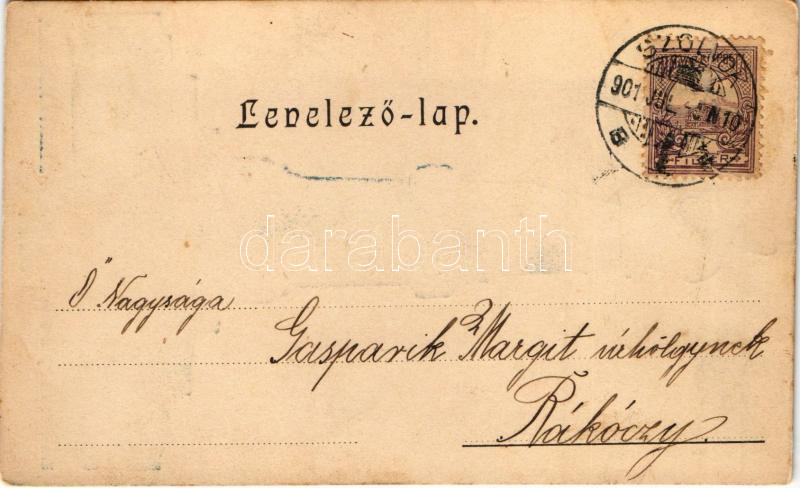 Levelező-lap.
901 JUL
FILLÉR
darabanth
Ő Nagysága
Gasparik Margit úrhölgynek
Rákóczy.